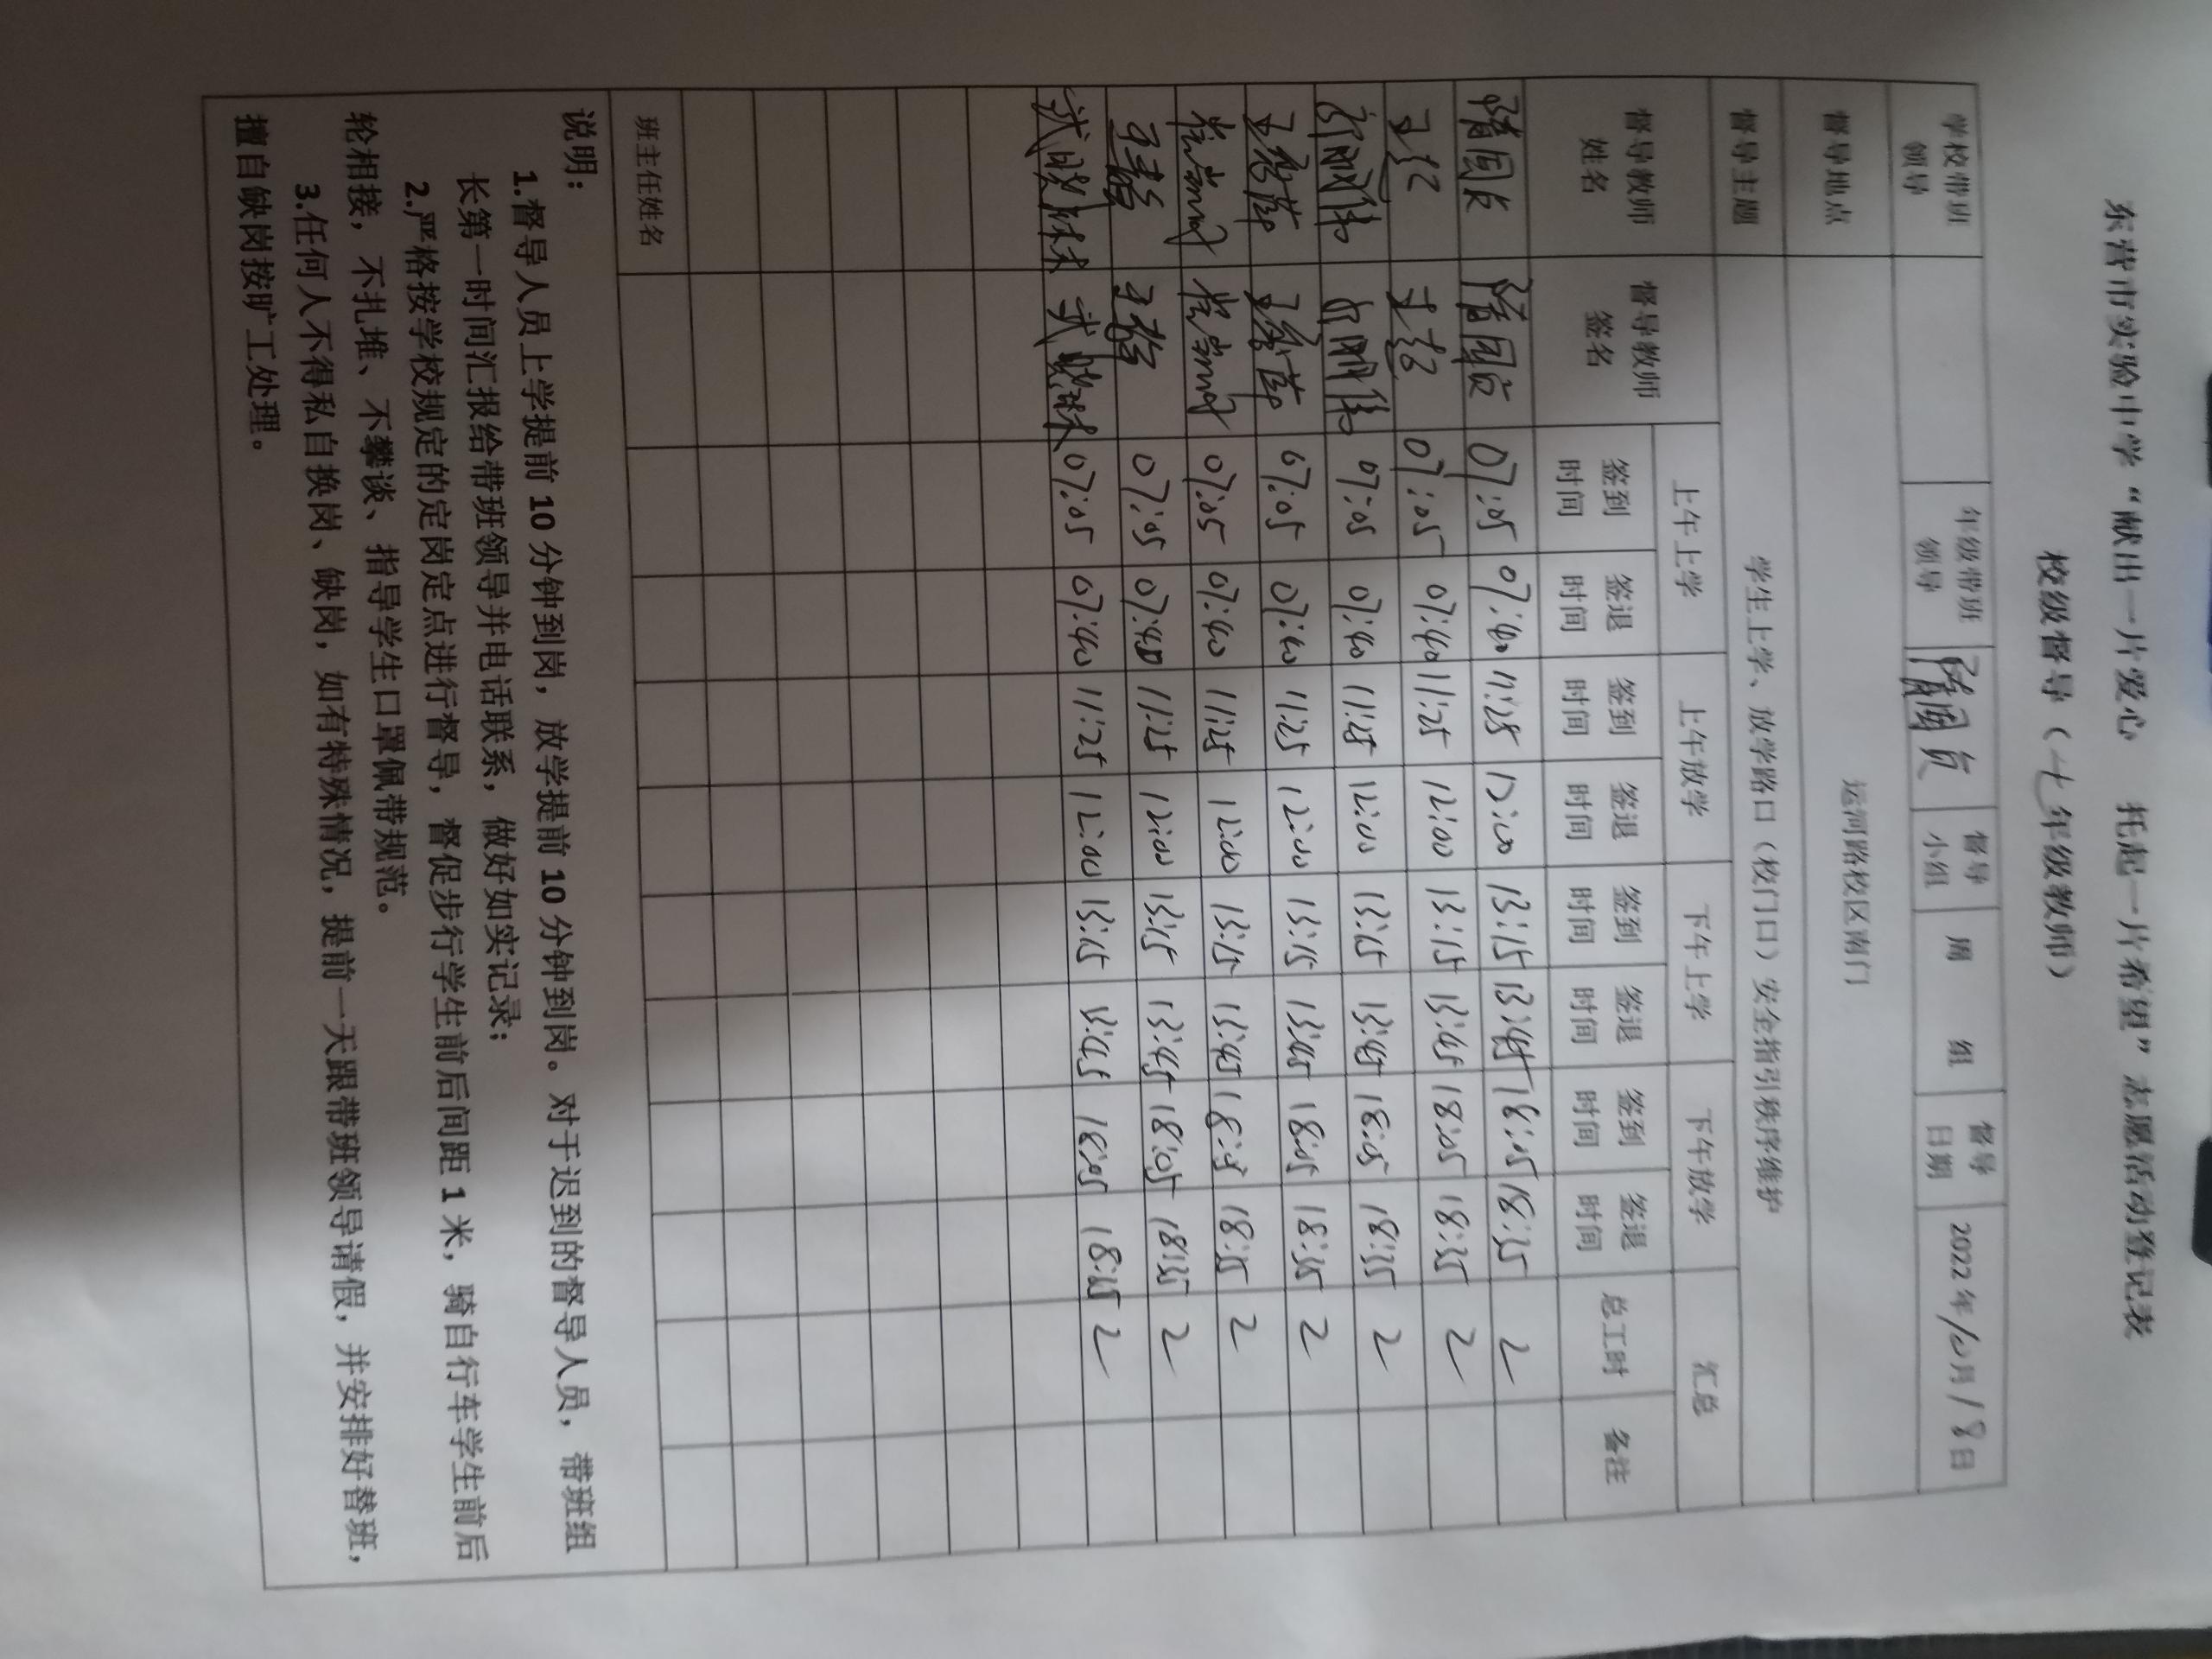 东营市实验中学“献出一片爱心 托起一片希望”志愿活动登记表
校级督导（七年级教师）
学校带班领导 年级带班领导 督导小组 周 组 督导日期 2022年10月18日
督导地点 运河路校区南门
督导主题 学生上学、放学路口（校门口）安全指引秩序维护
督导教师姓名 督导教师签名 上午上学 上午放学 下午上学 下午放学 汇总
签到时间 签退时间 签到时间 签退时间 签到时间 签退时间 签到时间 签退时间 总工时 备注
07:05 07:40 11:25 12:00 13:15 13:45 18:05 18:35 2
07:05 07:40 11:25 12:00 13:15 13:45 18:05 18:35 2
07:05 07:40 11:25 12:00 13:15 13:45 18:05 18:35 2
07:05 07:40 11:25 12:00 13:15 13:45 18:05 18:35 2
07:05 07:40 11:25 12:00 13:15 13:45 18:05 18:35 2
07:05 07:40 11:25 12:00 13:15 13:45 18:05 18:35 2
07:05 07:40 11:25 12:00 13:15 13:45 18:05 18:35 2
班主任姓名
说明：
1.督导人员上学提前10分钟到岗，放学提前10分钟到岗。对于迟到的督导人员，带班组
长第一时间汇报给带班领导并电话联系，做好如实记录；
2.严格按学校规定的定岗定点进行督导，督促步行学生前后间距1米，骑自行车学生前后
轮相接，不扎堆、不攀谈、指导学生口罩佩带规范。
3.任何人不得私自换岗、缺岗，如有特殊情况，提前一天跟带班领导请假，并安排好替班，
擅自缺岗按旷工处理。